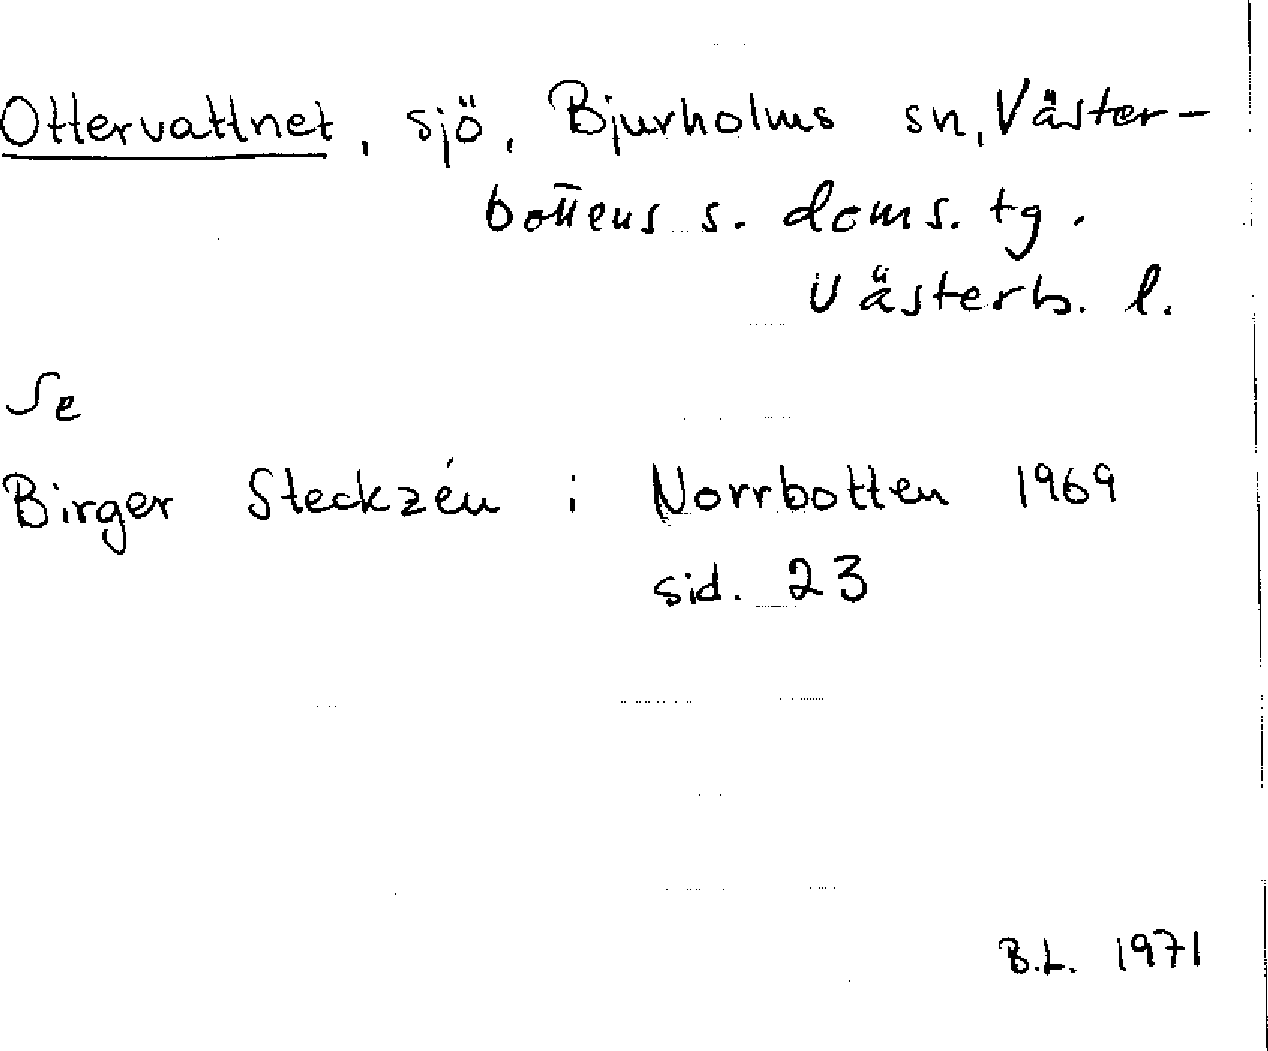 Ottervattnet, sjö, Bjurholms sn, Väster-
bottens s. doms. tg.
Västerb. l.
Se
Birger Steckzén i Norrbotten 1969
sid. 23
B.L. 1971